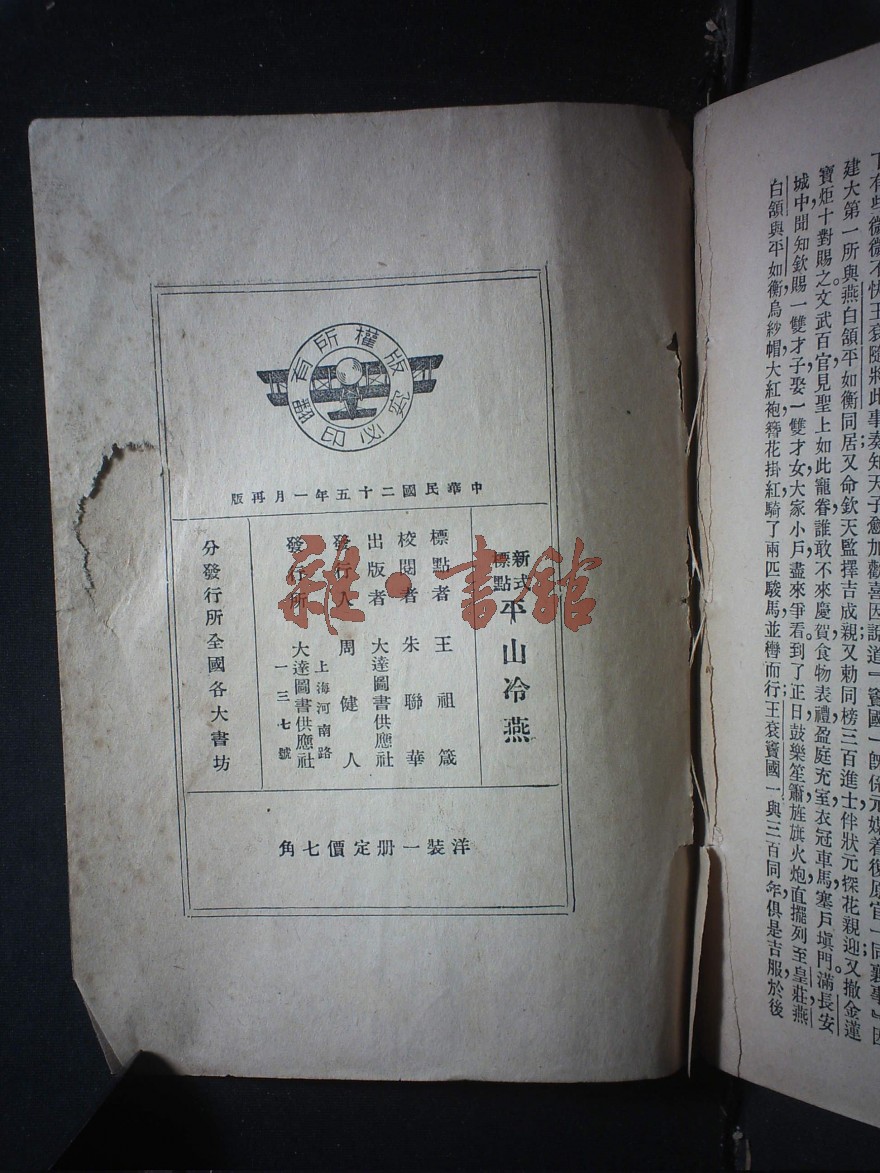 版權所有
翻印必究
中華民國二十五年一月再版
新式標點 平山冷燕
標點者 王祖箴
校閱者 朱聯華
出版者 大達圖書供應社
發行人 周健人
發行所 上海河南路一三七號 大達圖書供應社
分發行所全國各大書坊
洋裝一册定價七角
雜·書館
建大第一所與燕白頷平如衡同居又命欽天監擇吉成親又勅同榜三百進士伴狀元探花親迎又撤金蓮
寶炬十對賜之文武百官見聖上如此寵眷誰敢不來慶賀食物表禮盈庭充室衣冠車馬塞戶塡門滿長安
城中聞知欽賜一雙才子娶一雙才女大家小戶盡來爭看到了正日鼓樂笙簫旌旗火炮直擺列至皇莊燕
白頷與平如衡烏紗帽大紅袍簪花掛紅騎了兩匹駿馬並轡而行王袞竇國一與三百同年俱是吉服於後